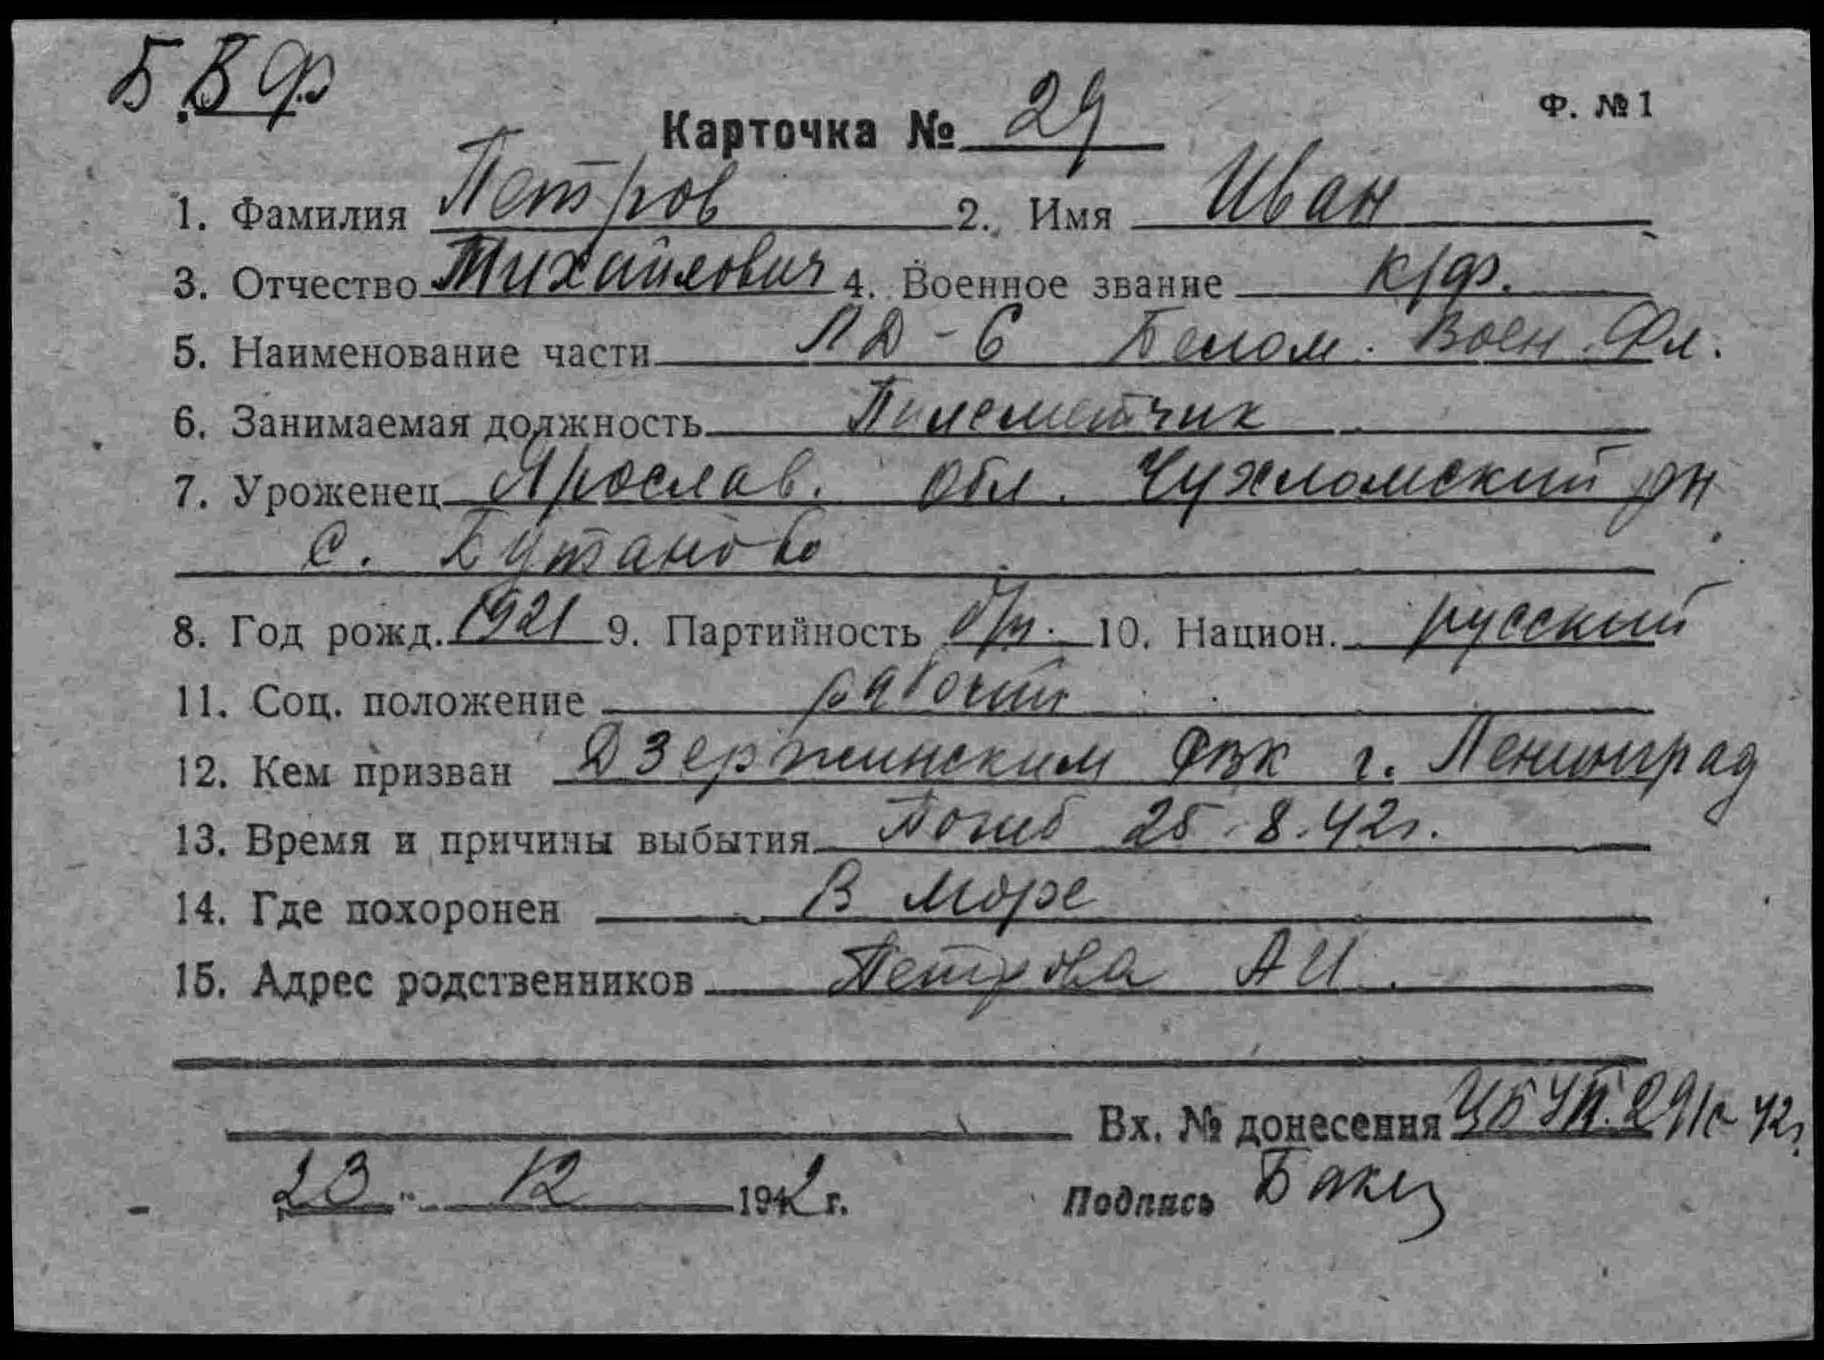 Б.В.Ф
Ф. №1
Карточка № 29
1. Фамилия Петров 2. Имя Иван
3. Отчество Михайлович 4. Военное звание к/ф.
5. Наименование части ЛД-6 Белом. Воен. Фл.
6. Занимаемая должность Пулеметчик
7. Уроженец Ярослав. обл. Чухломский рн
с. Бутаново
8. Год рожд. 1921 9. Партийность б/п. 10. Национ. русский
11. Соц. положение рабочий
12. Кем призван Дзержинским РВК г. Ленинград
13. Время и причины выбытия Погиб 25.8.42г.
14. Где похоронен В море
15. Адрес родственников Петрова А И.
Вх. № донесения 42г.
23 12 1942 г. Подпись